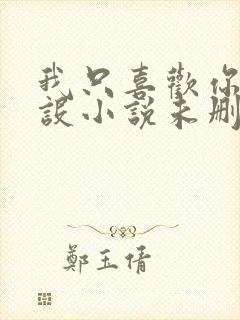 我只喜歡你
設小說未刪
鄭玉倩